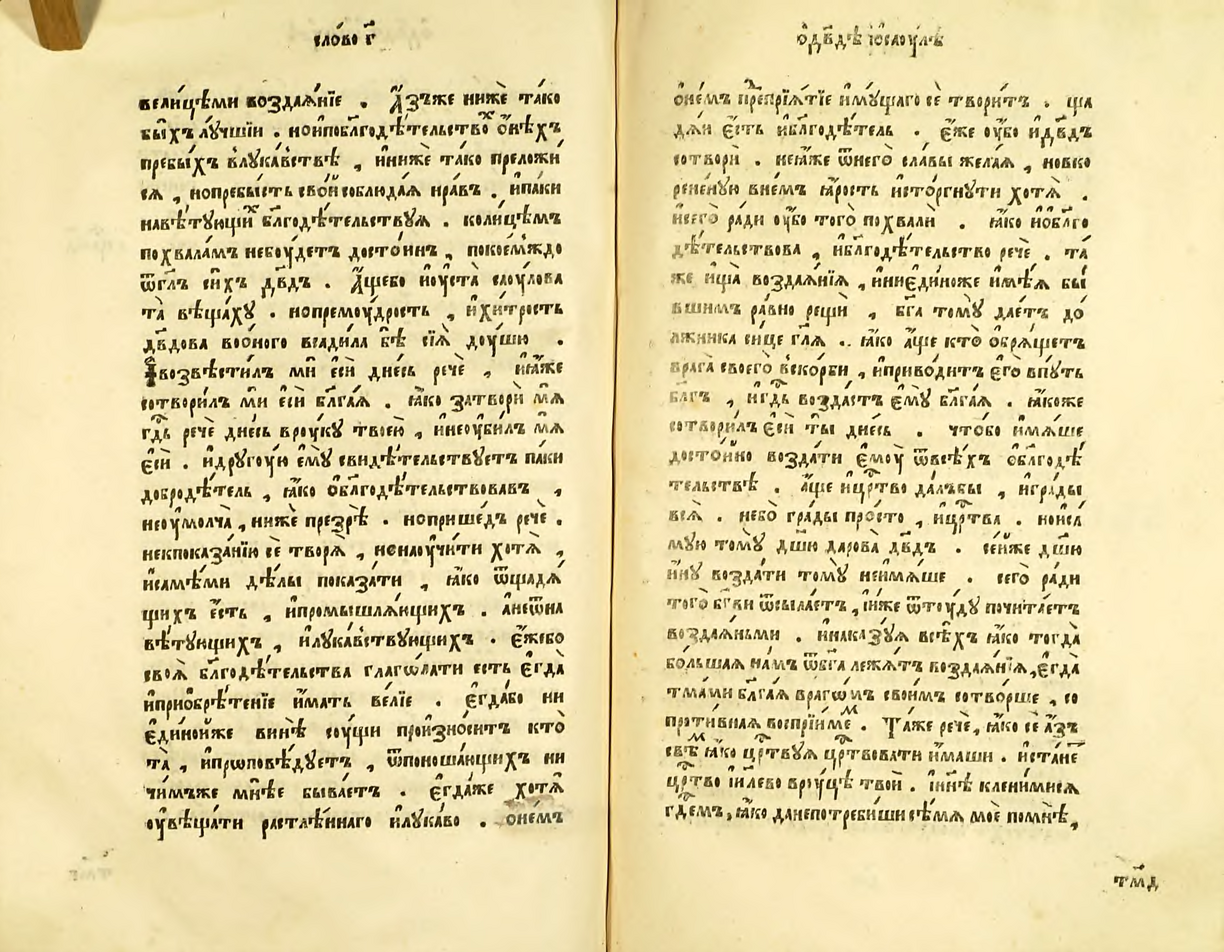 сло́во г҃
вели́цѣми воздаѧ́нїе . А҆́зъже нижѐ та́ко
бы́хъ лꙋ́чшїи . нои҆поблг҃одѣ́тельствоⷯ ѻ҆́нѣхъ
пребы́хъ влꙋка́вствѣ , и҆нижѐ та́ко преложи́
сѧ , нопребы́сть сво́й соблюда́ѧ нра́въ . и҆па́ки
навѣ́тꙋющиⷯ блг҃одѣ́тельствꙋѧ . коли́цѣмъ
похвала́мъ небоу́детъ досто́инъ , покое́мждо
ѿгл҃ъ си́хъ дв҃дъ . А҆́щебо и҆оу҆ста̀ саоу́лова
та̀ вѣща́хꙋ . нопремоу́дрость , и҆хи́трость
дв҃дова во́оного всади́ла бѣ̀ сїѧ̀ доу́шю .
Ꙗ҆возвѣсти́лъ мѝ е҆сѝ дне́сь речѐ , и҆ꙗ҆́же
сотвори́лъ мѝ е҆сѝ бл҃га́ѧ . ꙗ҆́ко затворѝ мѧ̀
гдⷭ҇ь речѐ дне́сь вроу́кꙋ твоею̀ , и҆неоу҆би́лъ мѧ̀
е҆сѝ . и҆дрꙋгоу́ю є҆мꙋ̀ свидѣ́тельствꙋетъ па́ки
добродѣ́тель , ꙗ҆́ко ѻ҆блг҃одѣ́тельствова́въ ,
неоу҆молча̀ , нижѐ презрѣ̀ . ноприше́дъ речѐ .
некпоказа́нїю сѐ творѧ̀ , ненаоу҆чи́ти хотѧ̀ ,
и҆самѣ́ми дѣ́лы показа́ти , ꙗ҆́ко ѿщадѧ́
щихъ є҆́сть , и҆промышлѧ́ющихъ . а҆неѿна
вѣ́тꙋющихъ , и҆лꙋка́вствꙋющихъ . є҆́жебо
своѧ̀ блг҃одѣ́тельства глаго́лати є҆сть є҆гда̀
и҆приобрѣ́тенїе и҆́мать ве́лїе . є҆гда́бо ни
є҆ди́нои҆же винѣ̀ соу́щи произно́ситъ кто̀
та̀ , и҆прѡповѣ́дꙋетъ , ѿпоноша́ющихъ ни
чи́мъже мнѣ́е быва́етъ . є҆гда́же хотѧ̀
оу҆вѣща́ти растлѣ́ннаго и҆лꙋка́во . ѻ҆не́мъ
ѻ҆дв҃дѣ и҆ѻ҆саоу́лѣ
ѻ҆не́мъ препрїѧ́тїе и҆мꙋ́щаго сѐ твори́тъ . ща
дѧ́й є҆́сть и҆блг҃одѣ́тель . є҆́же оу҆́бо и҆дв҃дъ
сотворѝ . неꙗ҆́же ѿнего̀ сла́вы жела́ѧ , новко
рене́нꙋю вне́мъ ꙗ҆́рость и҆сто́ргнꙋти хотѧ̀ .
и҆сего̀ ра́ди оу҆́бо того̀ похвалѝ . ꙗ҆́ко и҆ѻ҆блг҃о
дѣ́тельствова , и҆блг҃одѣ́тельство речѐ . та́
же и҆ща̀ воздаѧ́нїѧ , и҆ниеди́ноже и҆мѣ́ѧ бы́
вшимъ ра́вно рещѝ , бг҃а томꙋ̀ дае́тъ до
лжника̀ си́це гл҃ѧ . ꙗ҆́ко а҆́ще кто̀ ѻ҆брѧ́щетъ
врага̀ своего̀ вско́рби , и҆приво́дитъ є҆го̀ впꙋ́ть
бл҃гъ , и҆гдⷭ҇ь возда́стъ є҆мꙋ̀ бл҃га́ѧ . ꙗ҆́коже
сотвори́лъ є҆сѝ ты̀ дне́сь . что́бо и҆мѧ́ше
досто́йно возда́ти є҆моу̀ ѿвсѣ́хъ ѻ҆блг҃одѣ́
тельствѣ . а҆́ще и҆црⷭ҇тво да́лъбы , и҆гра́ды
всѧ̀ . не́бо гра́ды про́сто , и҆црⷭ҇тва . нои҆са́
мꙋю томꙋ̀ дш҃ю дарова̀ дв҃дъ . се́йже дш҃ю
и҆́нꙋ возда́ти томꙋ̀ неи҆мѧ́ше . сего̀ ра́ди
того̀ бг҃ви ѿсыла́етъ , и҆́же ѿтоу́дꙋ почита́етъ
воздаѧ́ньми . и҆наказꙋ́ѧ всѣ́хъ ꙗ҆́ко тогда̀
бо́льшаѧ на́мъ ѿбг҃а лежа́тъ воздаѧ́нїѧ , є҆гда̀
тма́ми бл҃га́ѧ врагѡ́мъ свои́мъ сотво́рше , со
проти́внаѧ воспрїи́меⷨ . Та́же речѐ , ꙗ҆́ко сѐ а҆́зъ
свѣⷨ ꙗ҆́ко црⷭ҇твꙋѧ црⷭ҇твовати и҆́маши . и҆ста́не
црⷭ҇тво і҆и҃лево вроу́цѣ твое́й . и҆ни́нѣ клени́мисѧ
гдⷭ҇емъ , ꙗ҆́ко данепотреби́ши сѣ́мѧ моѐ помнѣ̀ ,
тм҃д